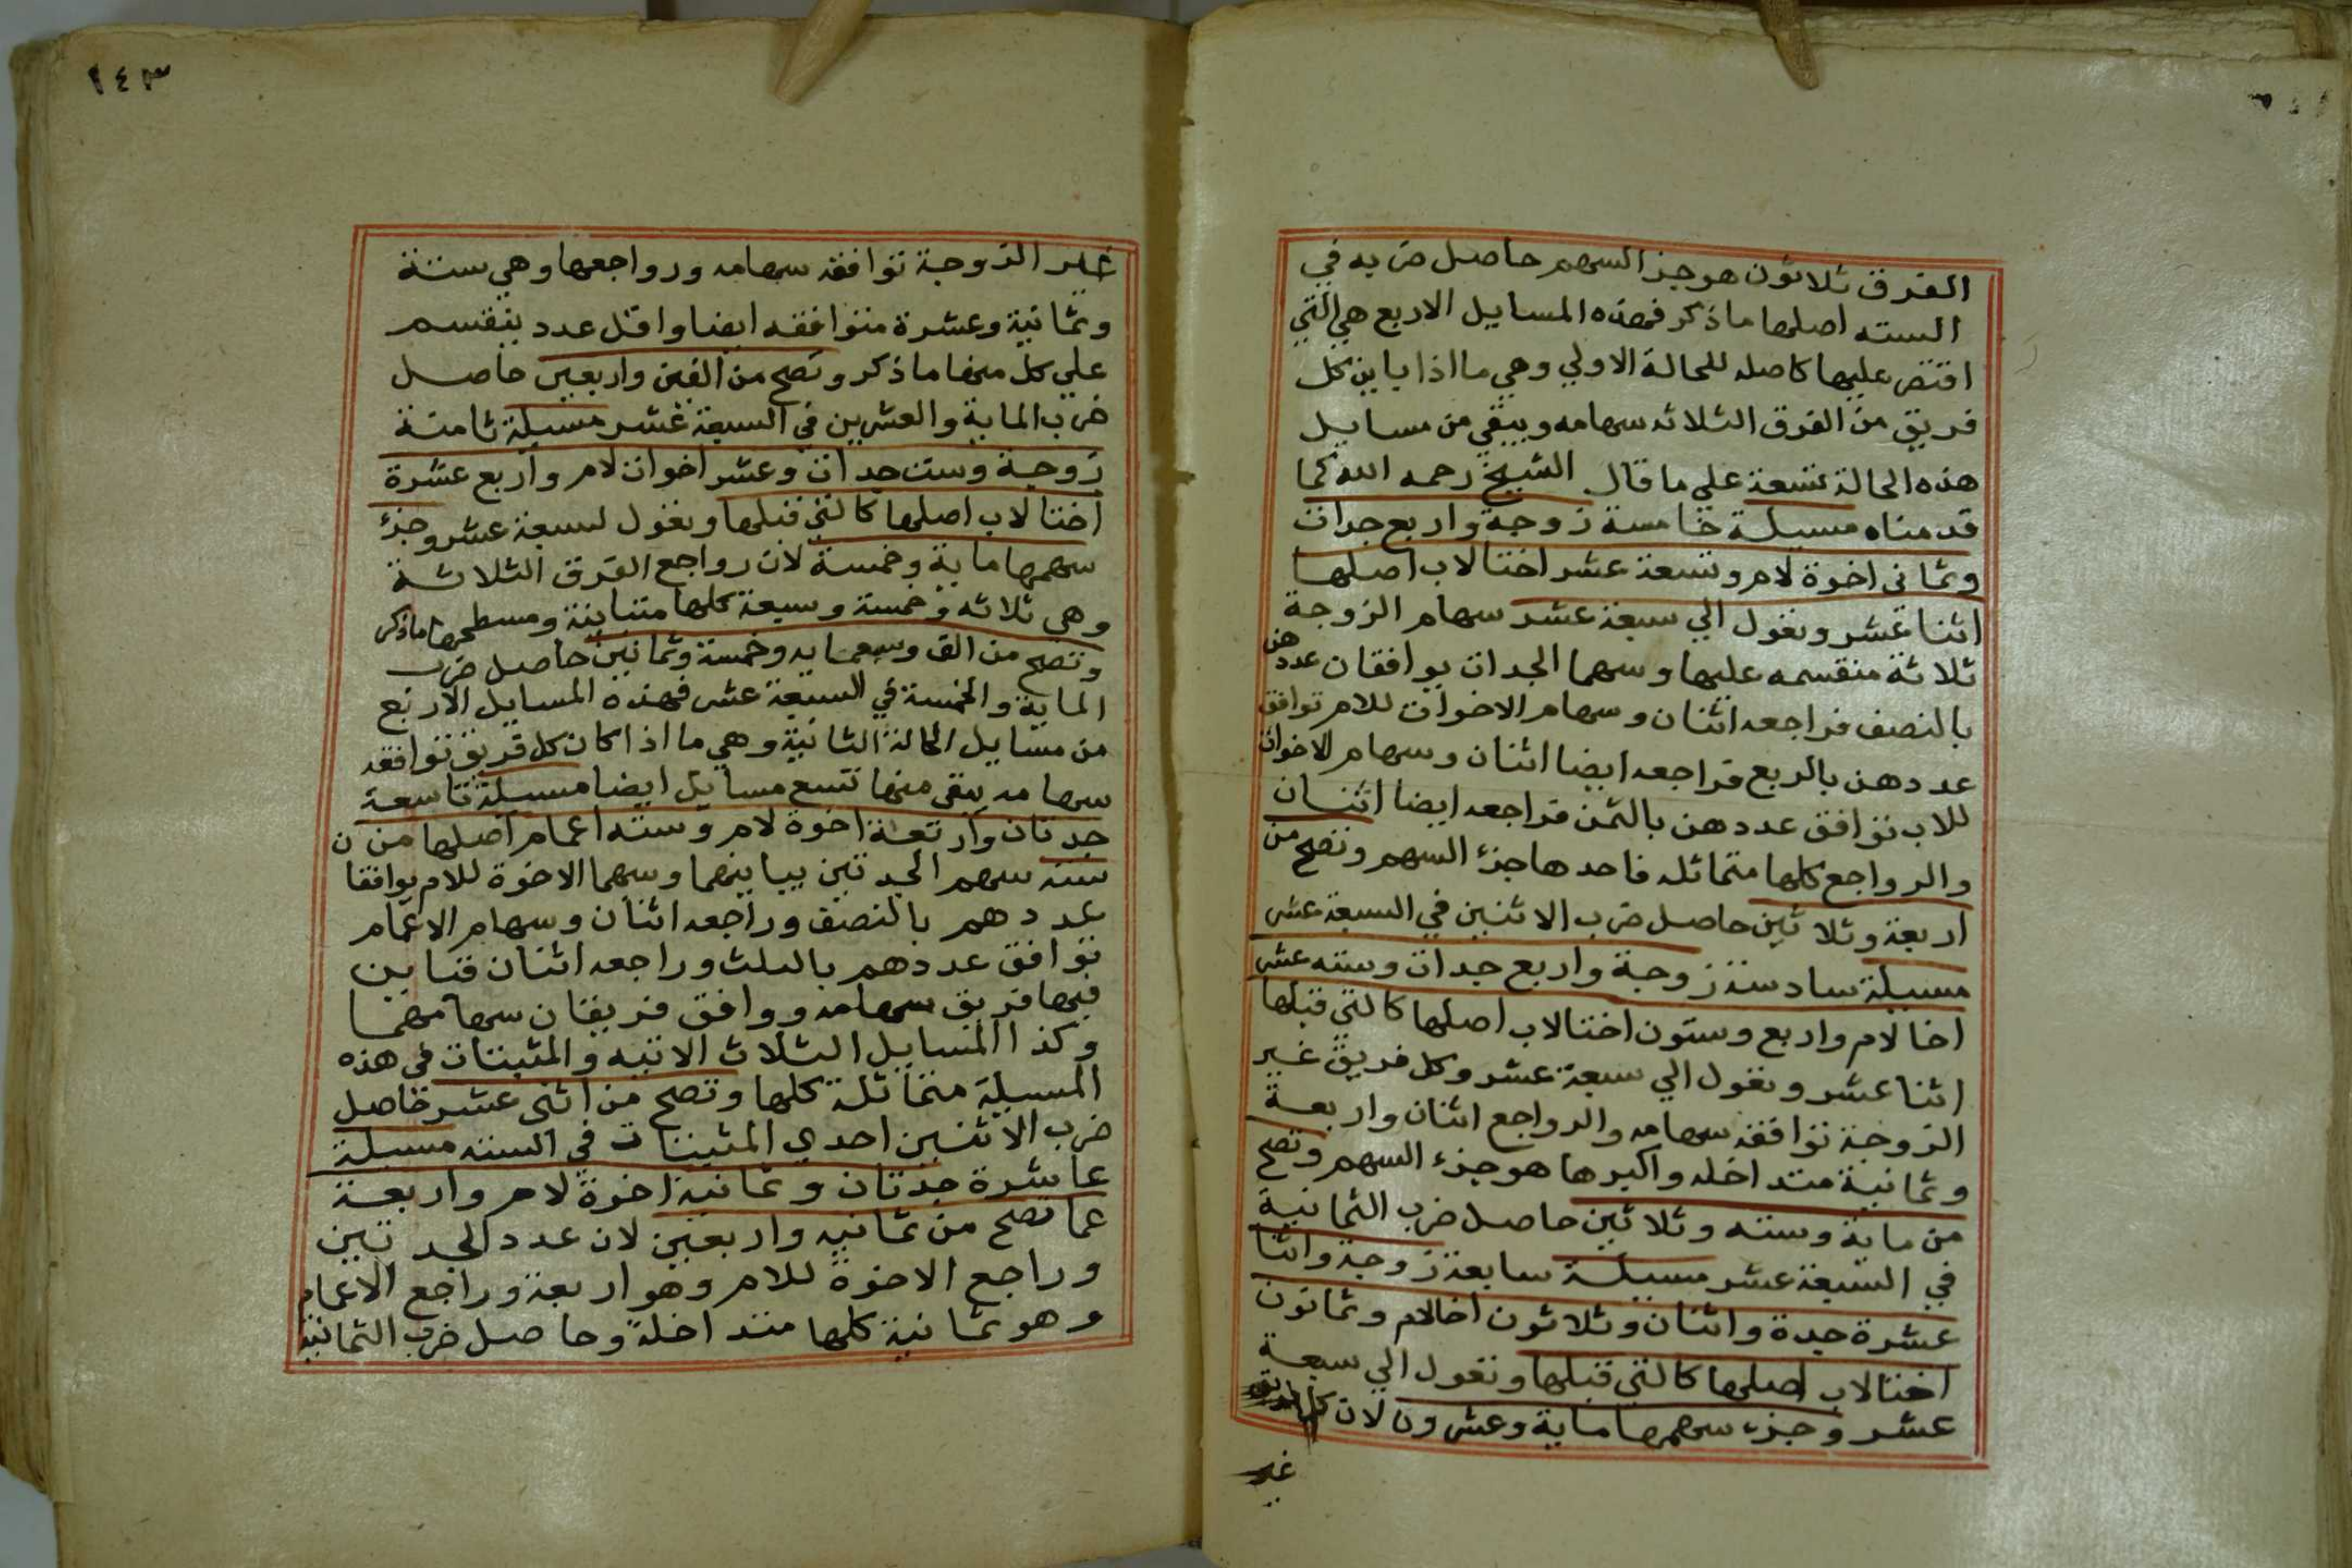 الفرق ثلاثون هو جز السهم حاصل ضربه في
السته اصلها ما ذكر فهذه المسايل الاربع هي التي
اقتصر عليها كاصله للحالة الاولي وهي ما اذا باين كل
فريق من الفرق الثلاثه سهامه ويبقي من مسايل
هذه الحالة تسعة علي ما قال الشيخ رحمه الله كما
قدمناه مسيلة خامسة زوجة واربع جدات
وثماني اخوة لام وتسعة عشر اختا لاب اصلها
اثنا عشر وتعول الي سبعة عشر سهام الزوجة
ثلاثة منقسمه عليها وسهما الجدات يوافقان عددهن
بالنصف فراجعه اثنان وسهام الاخوات للام توافق
عددهن بالربع فراجعه ايضا اثنان وسهام الاخوات
للاب توافق عددهن بالثمن فراجعه ايضا اثنان
والرواجع كلها متماثله فاحدها جزء السهم وتصح من
اربعة وثلاثين حاصل ضرب الاثنين في السبعة عشر
مسيلة سادسة زوجة واربع جدات وسته عشر
اخا لام واربع وستون اختا لاب اصلها كالتي قبلها
اثنا عشر وتعول الي سبعة عشر وكل فريق غير
الزوجة توافقه سهامه والرواجع اثنان واربعة
وثمانية متداخله واكبرها هو جزء السهم وتصح
من ماية وسته وثلاثين حاصل ضرب الثمانية
في السبعة عشر مسيلة سابعة زوجة واثنا
عشرة جدة واثنان وثلاثون اخا لام وثمانون
اختا لاب اصلها كالتي قبلها وتعول الي سبعة
عشر وجزء سهمها ماية وعشرون لان كل فريق
غير
١٤٣
غير الزوجة توافقه سهامه ورواجعها وهي ستة
وثمانية وعشرة متوافقه ايضا واقل عدد ينقسم
علي كل منها ما ذكر وتصح من الفين واربعين حاصل
ضرب الماية والعشرين في السبعة عشر مسيلة ثامنة
زوجة وست جدات وعشر اخوات لام واربع عشرة
اختا لاب اصلها كالتي قبلها وتعول لسبعة عشر وجزء
سهمها ماية وخمسة لان رواجع الفرق الثلاثة
وهي ثلاثه وخمسة وسبعة كلها متباينة ومسطحها ما ذكر
وتصح من الف وسبعمايه وخمسة وثمانين حاصل ضرب
الماية والخمسة في السبعة عشر فهذه المسايل الاربع
من مسايل الحالة الثانية وهي ما اذا كان كل فريق توافقه
سهامه يبقي منها تسع مسايل ايضا مسيلة تاسعة
جدتان واربعة اخوة لام وسته اعمام اصلها من ن
سته سهم الجدتين يباينهما وسهما الاخوة للام يوافقا
عددهم بالنصف وراجعه اثنان وسهام الاعمام
توافق عددهم بالثلث وراجعه اثنان فتاين
فيها فريق سهامه ووافق فريقان سهامهما
وكذا المسايل الثلاث الاتيه والمثبتات في هذه
المسيلة متماثلة كلها وتصح من اثني عشر حاصل
ضرب الاثنين احدي المثبتات في السته مسيلة
عاشرة جدتان وثمانية اخوة لام واربعة
عما تصح من ثمانيه واربعين لان عدد الجدتين
وراجع الاخوة للام وهو اربعة وراجع الاعمام
وهو ثمانية كلها متداخلة وحاصل ضرب الثمانية